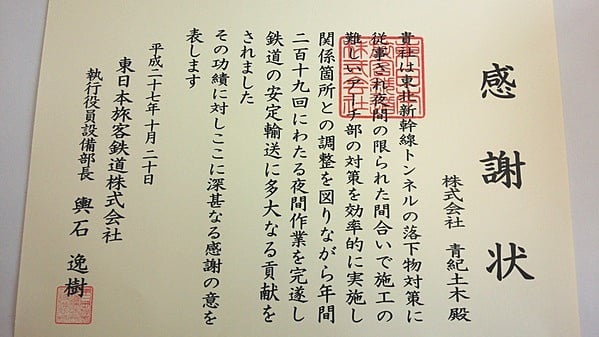 感謝状
株式会社 青紀土木 殿
貴社は東北新幹線トンネルの落下物対策に
従事され夜間の限られた間合いで施工の
難しいアーチ部の対策を効率的に実施し
関係箇所との調整を図りながら年間
二百十九回にわたる夜間作業を完遂し
鉄道の安定輸送に多大なる貢献を
されました
その功績に対しここに深甚なる感謝の意を
表します
平成二十七年十月二十日
東日本旅客鉄道株式会社
執行役員設備部長 輿石 逸樹